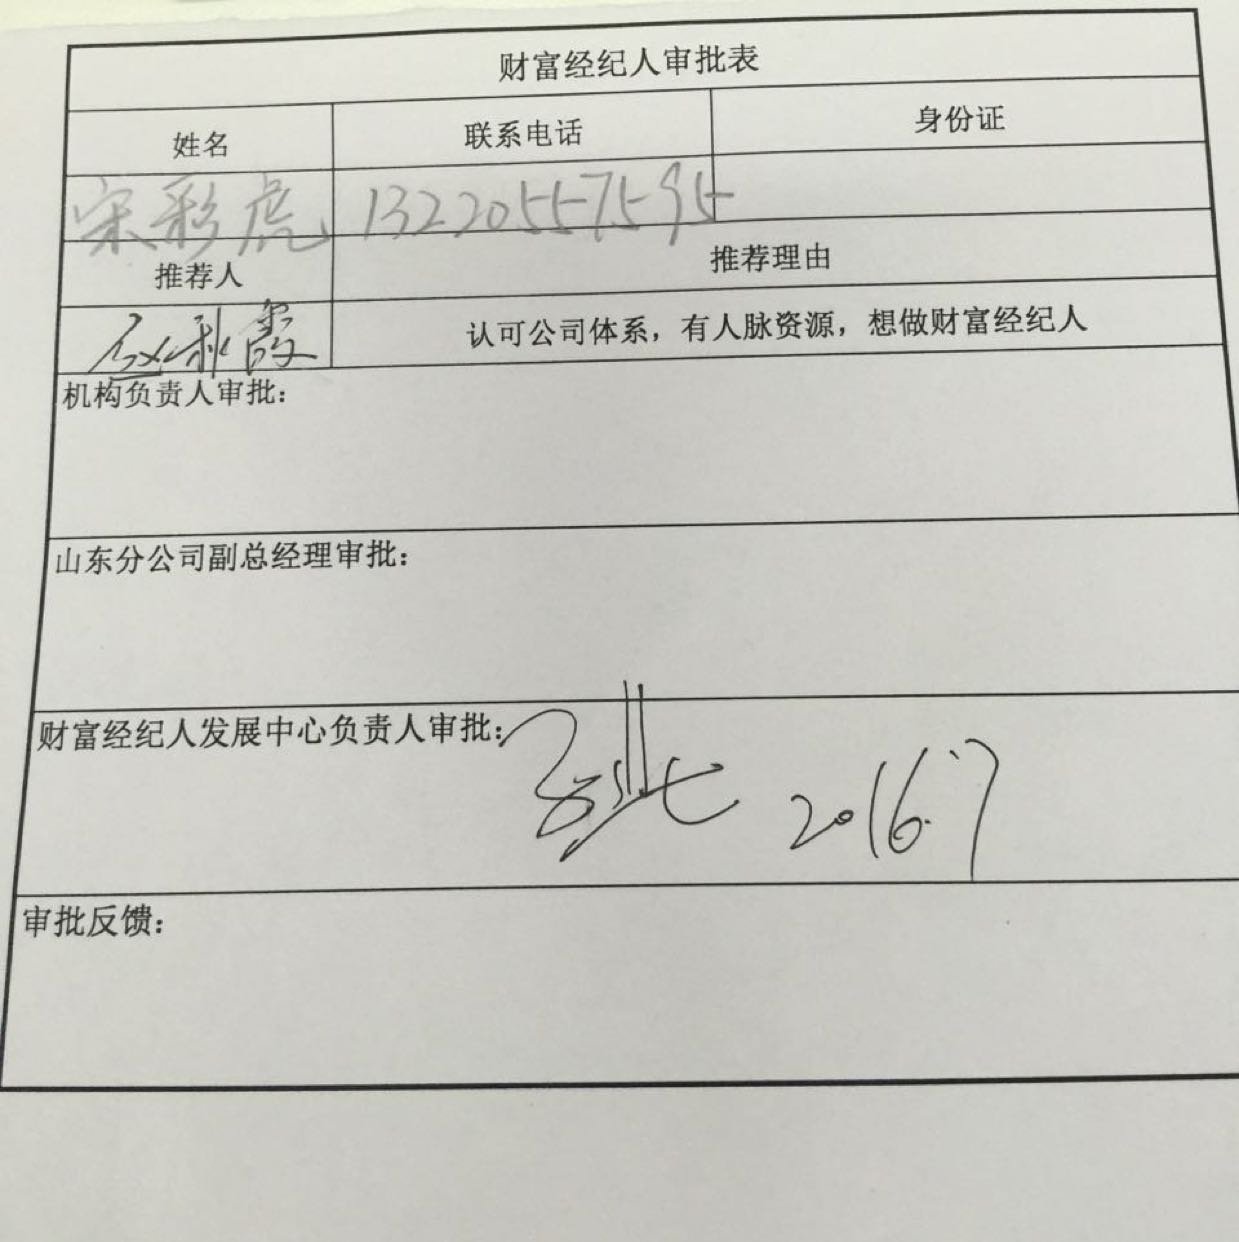 财富经纪人审批表
姓名 联系电话 身份证
宋彩虎 13220557595
推荐人 推荐理由
赵秋霞 认可公司体系，有人脉资源，想做财富经纪人
机构负责人审批：
山东分公司副总经理审批：
财富经纪人发展中心负责人审批： 2016.7
审批反馈：